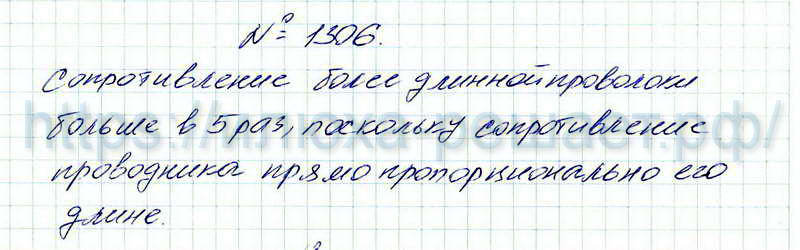 № 1306.
Сопротивление более длинной проволоки
больше в 5 раз, поскольку сопротивление
проводника прямо пропорционально его
длине.